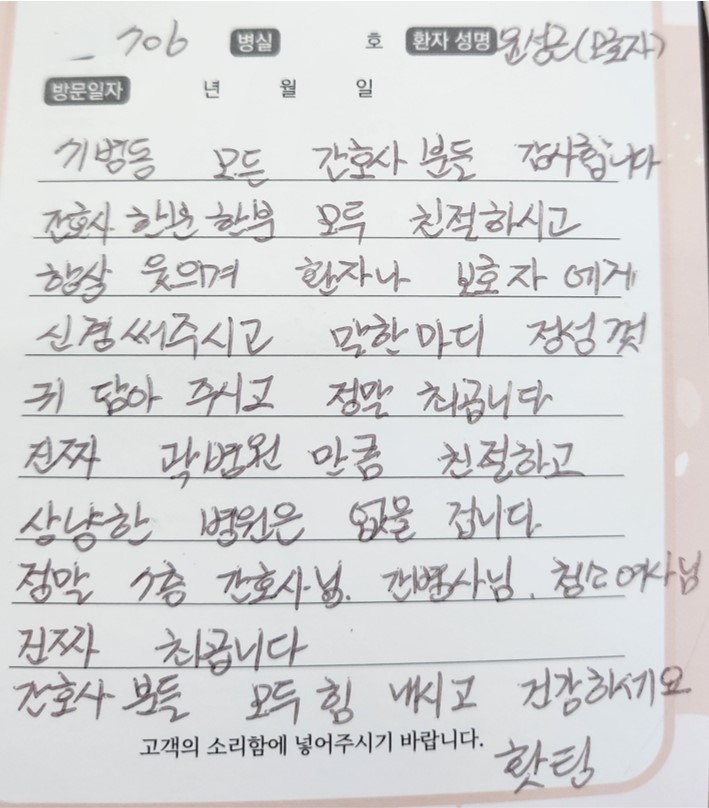 706 병실 호 환자 성명 윤성근(보호자)
방문일자 년 월 일
7병동 모든 간호사 분들 감사합니다
간호사 한분 한분 모두 친절하시고
항상 웃으며 환자나 보호자에게
신경써주시고 말한마디 정성껏
귀 담아 주시고 정말 최곱니다
진짜 곽병원 만큼 친절하고
상냥한 병원은 없을 겁니다
정말 7층 간호사님. 간병사님. 청소여사님
진짜 최곱니다
간호사 분들 모두 힘 내시고 건강하세요
고객의 소리함에 넣어주시기 바랍니다.
홧팅